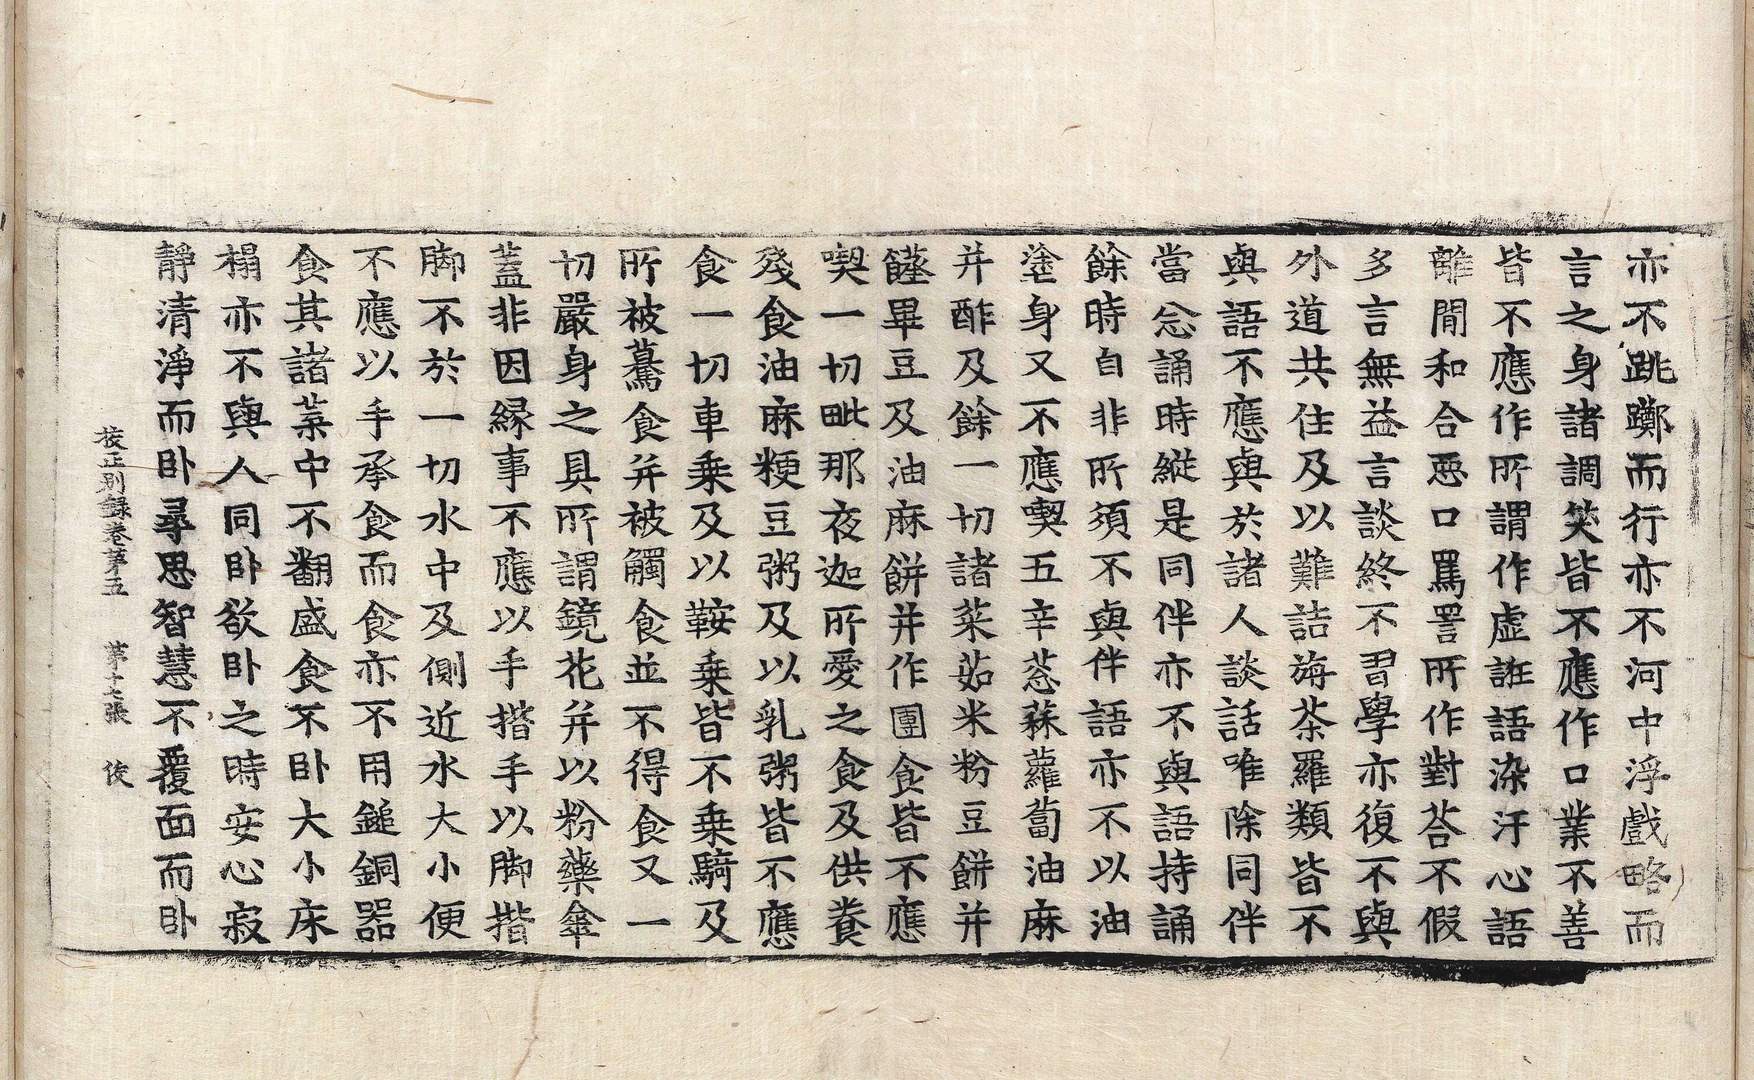 亦不跳躑而行亦不河中浮戲略而
言之身諸調笑皆不應作口業不善
皆不應作所謂作虛誑語染汙心語
離間和合惡口罵詈所作對荅不假
多言無益言談終不習學亦復不與
外道共住及以難詰旃荼羅類皆不
與語不應與於諸人談話唯除同伴
當念誦時縱是同伴亦不與語持誦
餘時自非所須不與伴語亦不以油
塗身又不應喫五辛葱蒜蘿蔔油麻
并酢及餘一切諸菜茹米粉豆餅并
饐畢豆及油麻餅并作團食皆不應
喫一切毗那夜迦所愛之食及供養
殘食油麻粳豆粥及以乳粥皆不應
食一切車乗及以鞍乗皆不乗騎及
所被驀食并被觸食並不得食又一
切嚴身之具所謂鏡花并以粉藥傘
蓋非因緣事不應以手揩手以脚揩
脚不於一切水中及側近水大小便
不應以手承食而食亦不用鎚銅器
食其諸菜中不翻盛食不卧大小床
榻亦不與人同卧欲卧之時安心寂
靜清淨而卧尋思智慧不覆面而卧
校正別録卷苐五　苐十七張　俊